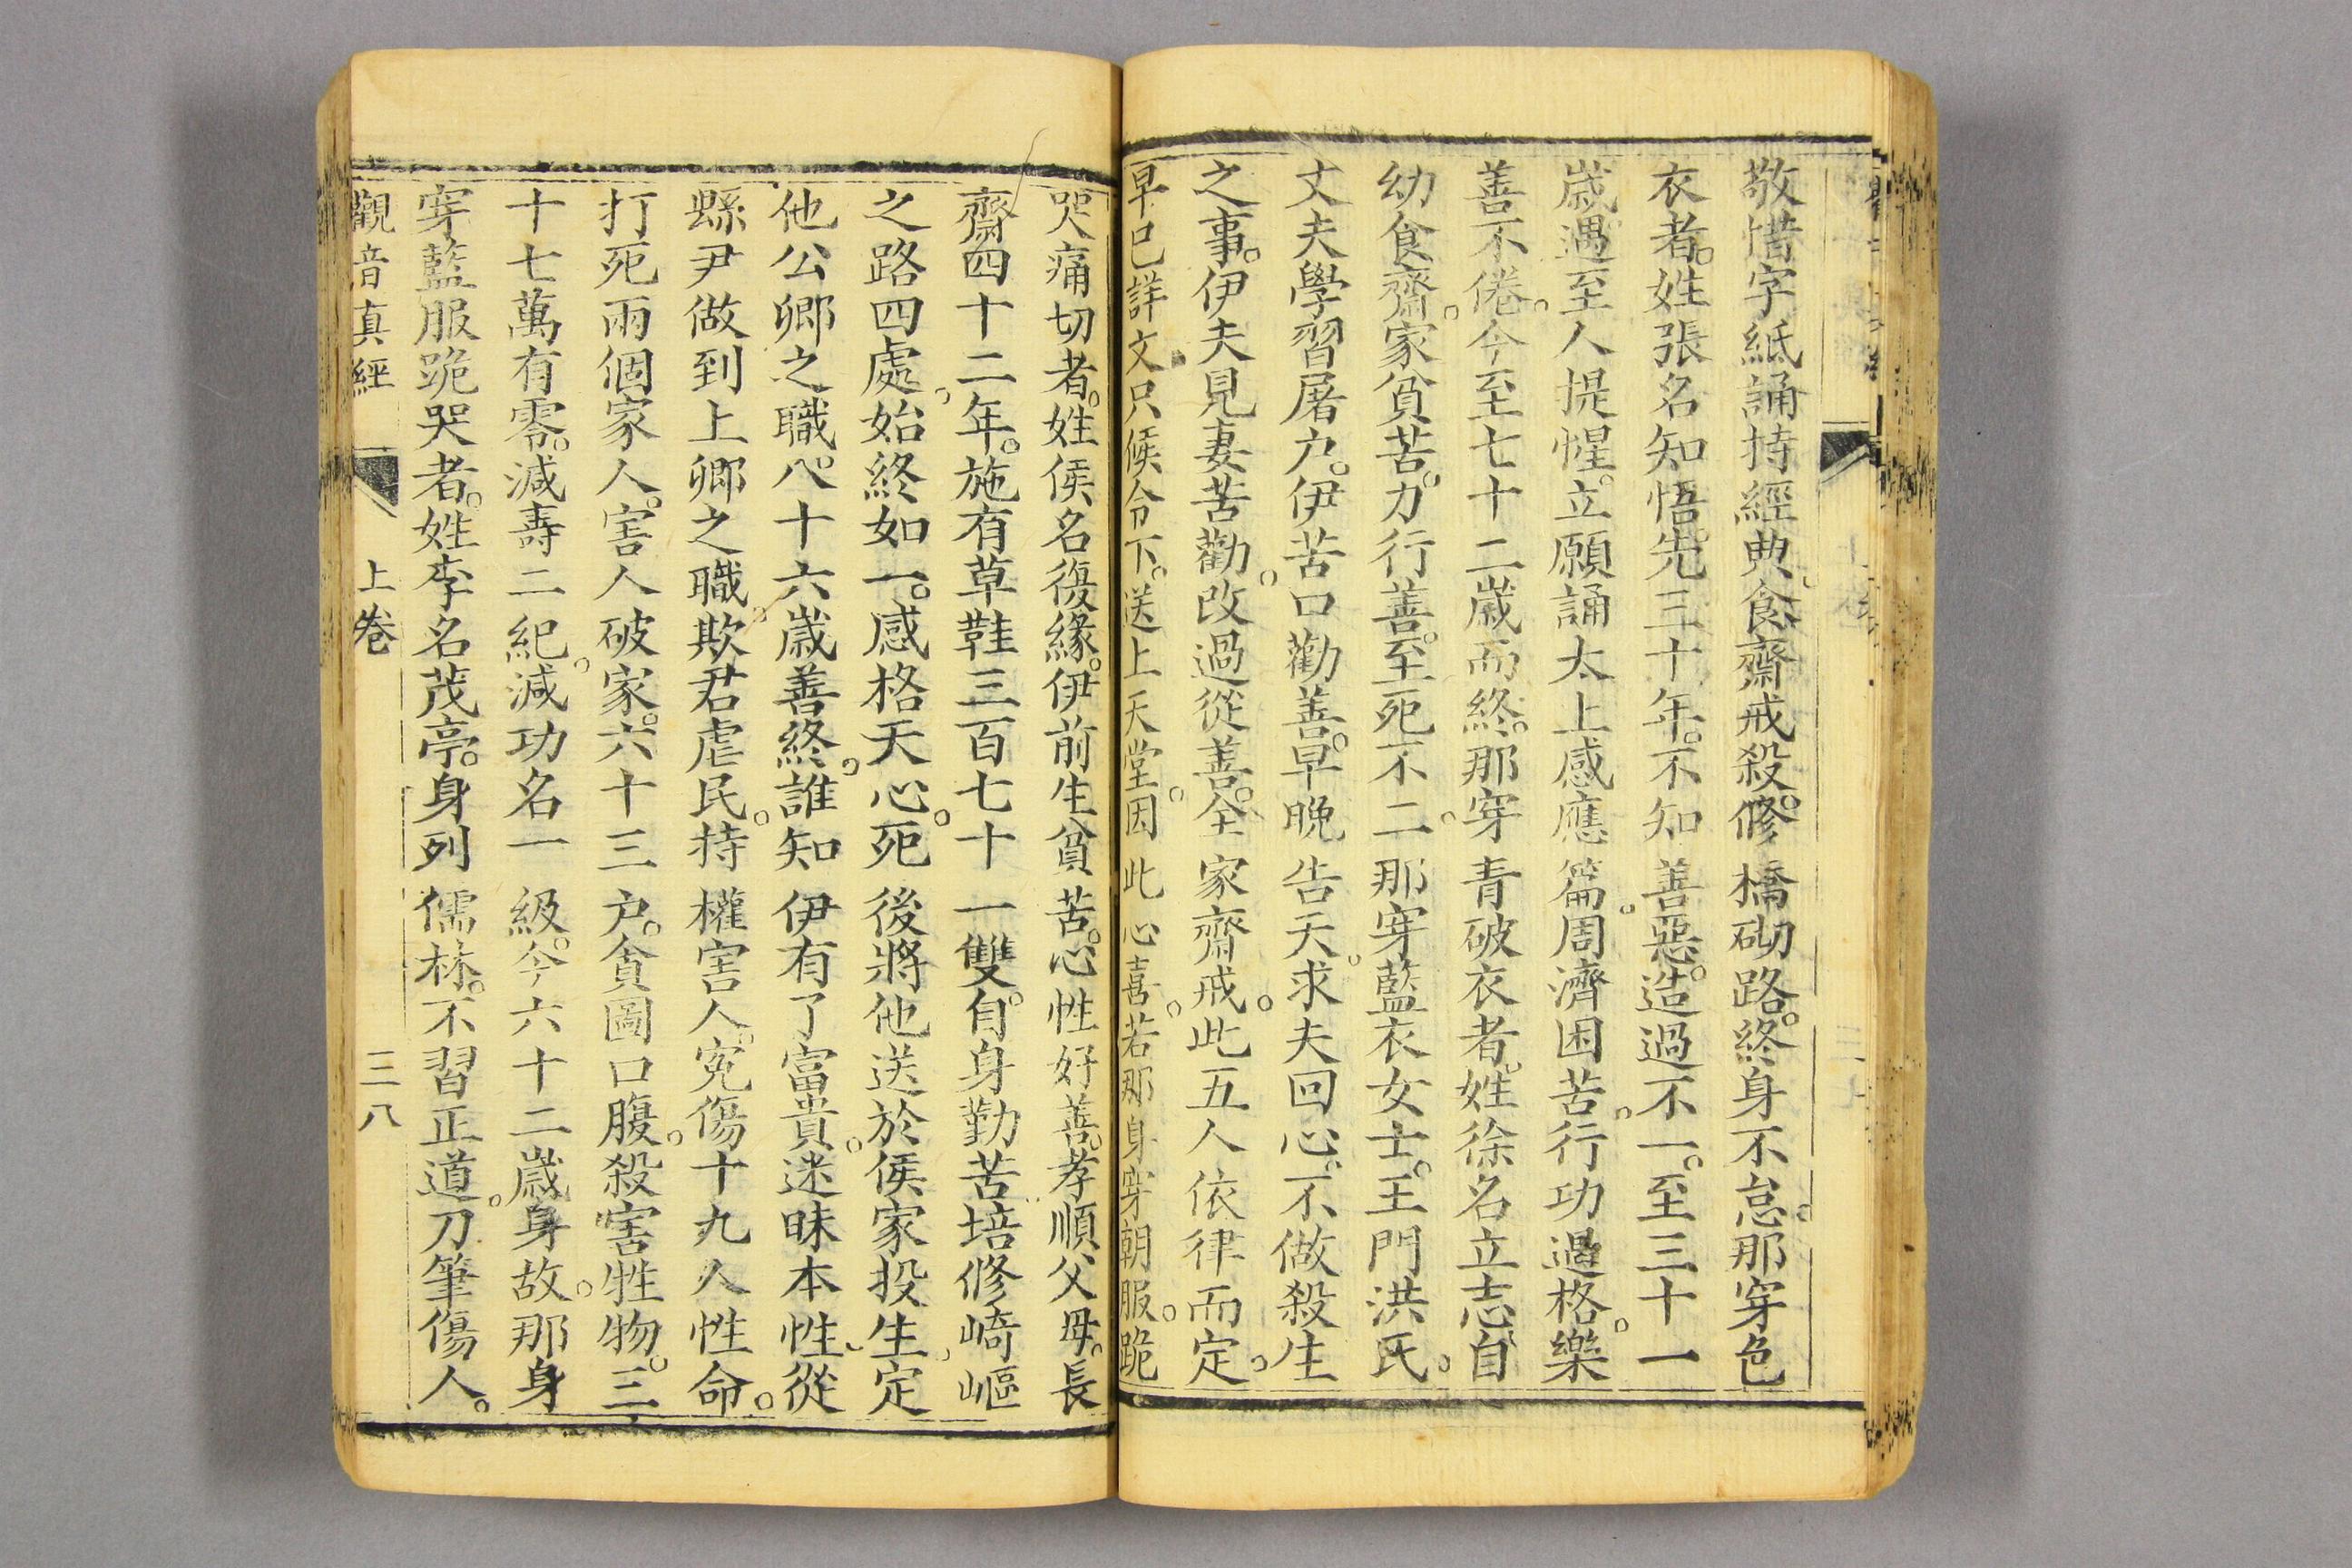 敬惜字紙誦持經典。食齋戒殺。修橋砌路。終身不怠。那穿色
衣者。姓張名知悟。先三十年。不知善惡。造過不一。至三十一
歲遇至人提惺。立願誦太上感應篇。周濟困苦。行功過格。樂
善不倦。今至七十二歲而終。那穿青破衣者。姓徐名立志。自
幼食齋。家貧苦。力行善。至死不二。那穿藍衣女士。王門洪氏。
丈夫學習屠力。伊苦口勸善。早晚告天。求夫回心。不做殺生
之事。伊夫見妻苦勸。改過從善。全家齋戒。此五人依律而定。
早已詳文只候令下。送上天堂。因此心喜。若那身穿朝服。跪
哭痛切者。姓侯名復緣。伊前生貧苦。心性好善。孝順父母。長
齋四十二年。施有草鞋三百七十一雙。自身勤苦培修崎嶇
之路四處。始終如一。感格天心。死後將他送於侯家投生。定
他公卿之職。八十六歲善終。誰知伊有了富貴。迷昧本性。從
縣尹做到上卿之職。欺君虐民。持權害人。冤傷十九人性命。
打死兩個家人。害人破家。六十三户。貪圖口腹。殺害牲物。三
十七萬有零。減壽二紀。減功名一級。今六十二歲身故。那身
穿藍服跪哭者。姓李名茂亭。身列儒林。不習正道。刀筆傷人。
觀音真經 上卷 三八